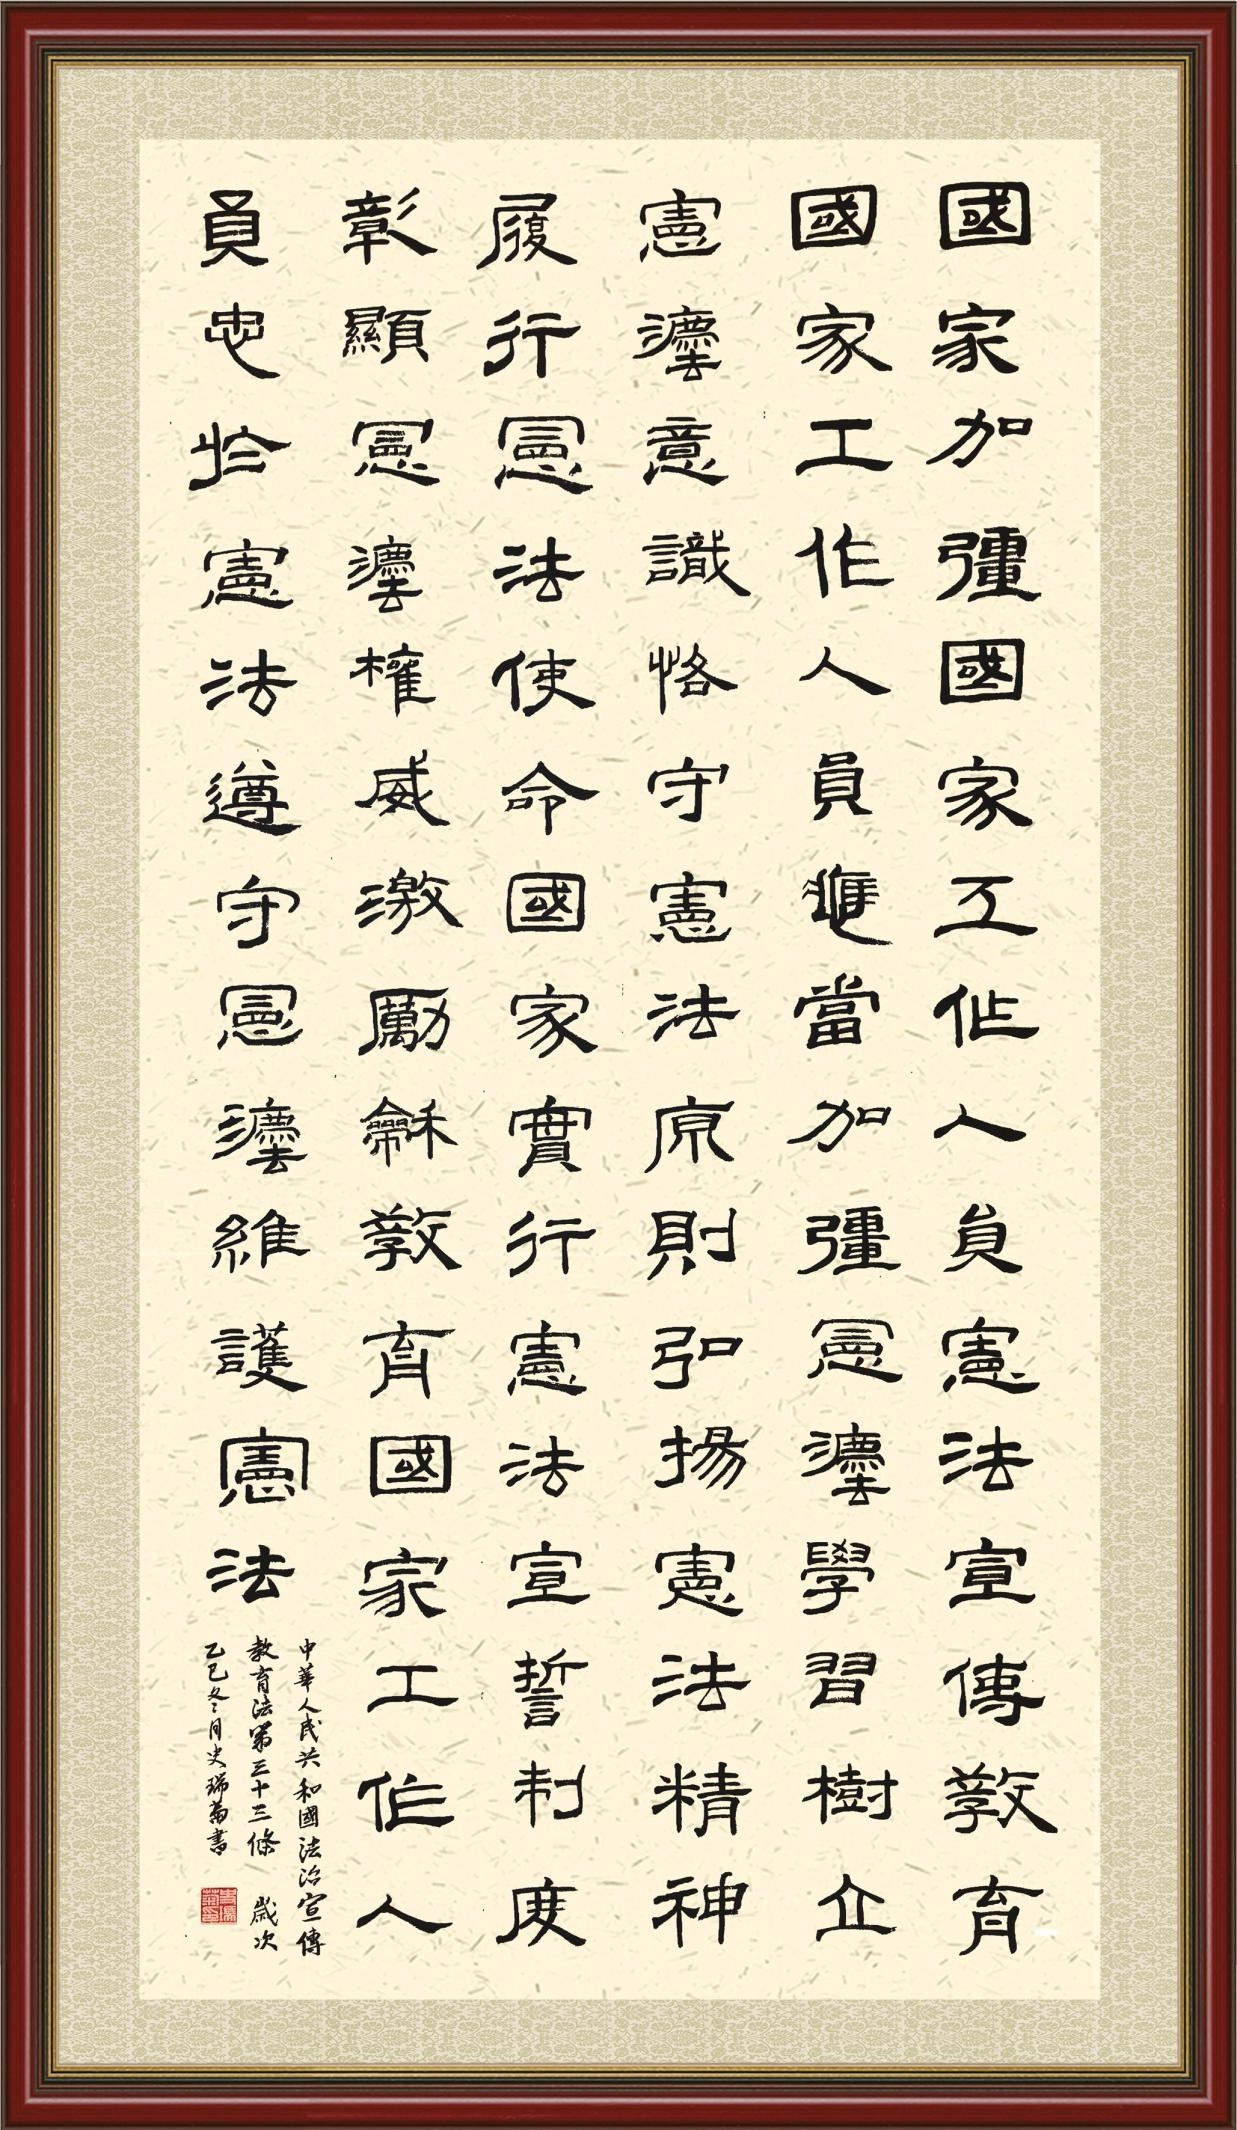 國家加彊國家工作人員憲法宣傳教育
國家工作人員應當加彊憲灋學習樹立
憲灋意識恪守憲法原則弘揚憲法精神
履行憲法使命國家實行憲法宣誓制度
彰顯憲灋權威激勵龢教育國家工作人
員忠於憲法遵守憲灋維護憲法
中華人民共和國法治宣傳
教育法第三十三條 歲次
乙巳冬月史瑞書